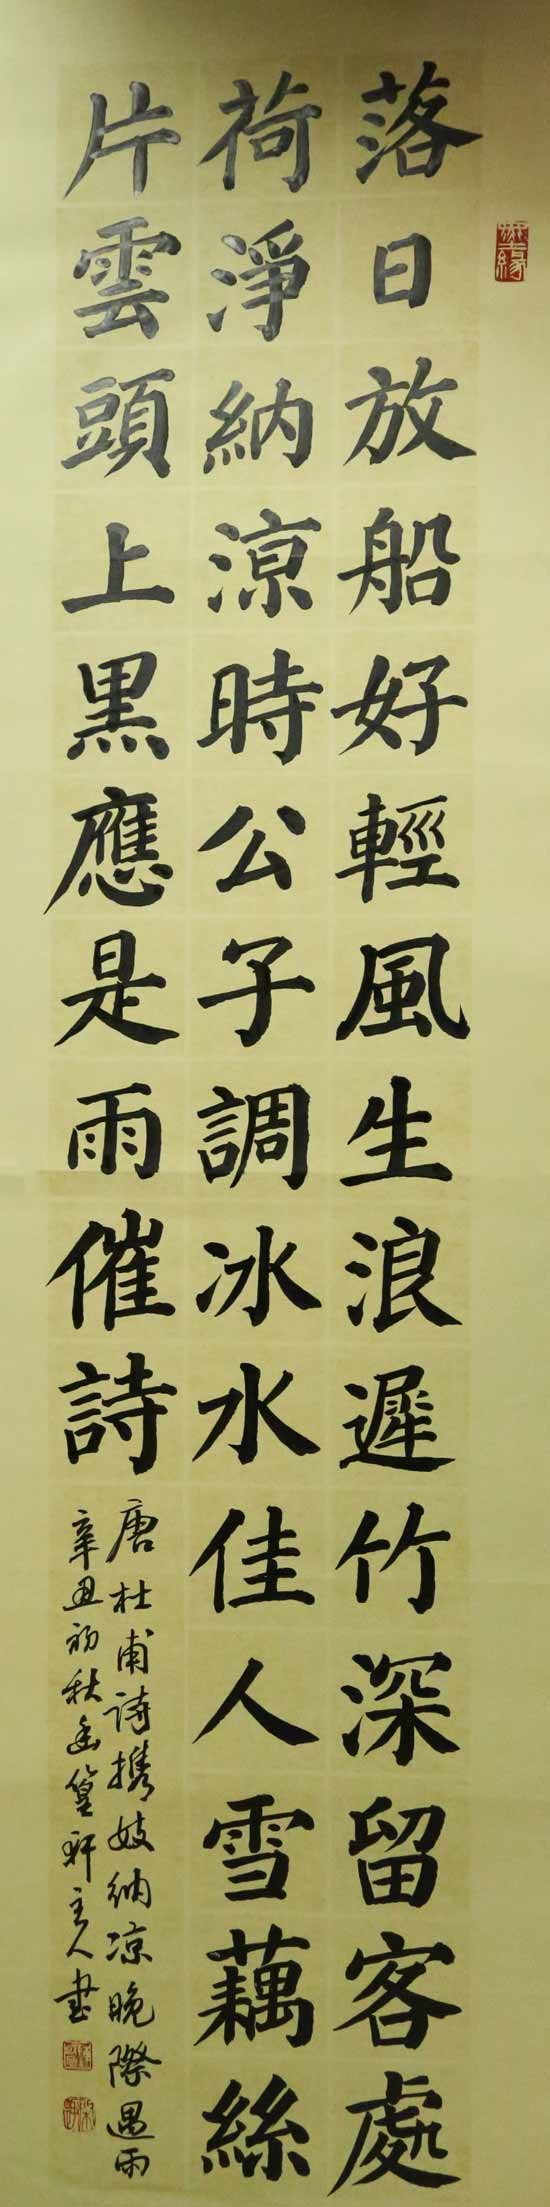 落日放船好輕風生浪遲竹深留客處
荷淨納涼時公子調冰水佳人雪藕絲
片雲頭上黑應是雨催詩
唐杜甫诗携妓纳凉晚際遇雨
辛丑初秋幽篁軒主人書